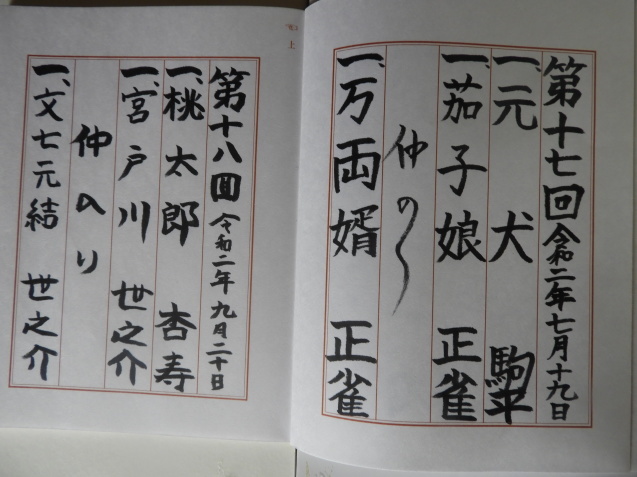 第十七回 令和二年七月十九日
一、元犬 駒平
一、茄子娘 正雀
仲の〵
一、万両婿 正雀
第十八回 令和二年九月二十日
一、桃太郎 杏寿
一、宮戸川 世之介
仲入り
一、文七元結 世之介
上